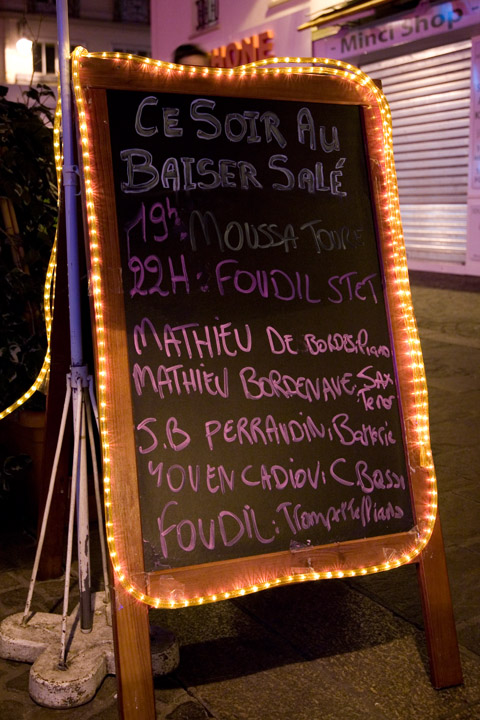 Minci Shop
HONE
CE SOIR AU
BAISER SALÉ
19h: MOUSSA
22H: FOUDIL STET
MATHIEU DE BORDES: Piano
MATHIEU BORDENAVE: SAX
Tenor
S.B PERRAUDIN: Batterie
YOVEN CADIOU: C.Bass
FOUDIL: Trompette/Piano